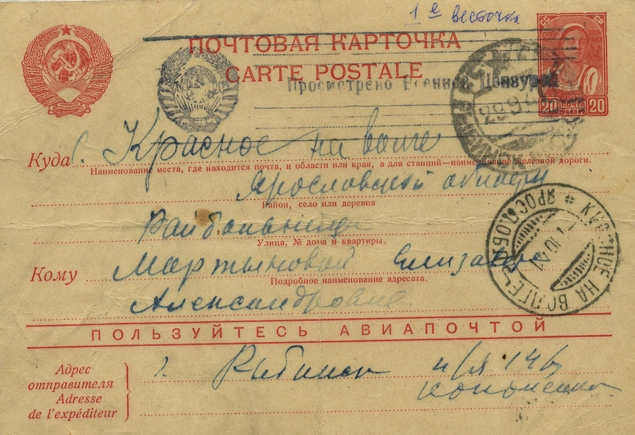 1 е весточка
ПОЧТОВАЯ КАРТОЧКА
CARTE POSTALE
СС СР
20 20
Просмотрено Военной Цензурой
29 9
Куда г. Красное на волге
Наименование места, где находится почта, и области или края, а для станций—наименование железной дороги.
Ярославской области
Район, село или деревня
Райбольница
Улица, № дома и квартиры.
КРАСНОЕ НА ВОЛГЕ ЯРОСЛ.ОБЛ.
1 10 41
Кому Мартыновой Елизавете
Подробное наименование адресата.
Александровне
ПОЛЬЗУЙТЕСЬ АВИАПОЧТОЙ
Адрес отправителя
Adresse de l'expéditeur
г. Рыбинск п/я 14